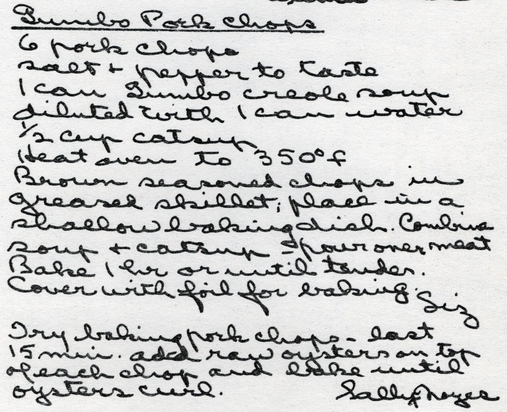 Gumbo Pork Chops
6 pork chops
salt + pepper to taste
1 can Gumbo creole soup
diluted with 1 can water
1/2 cup catsup
Heat oven to 350°f
Brown seasoned chops in
greased skillet; place in a
shallow baking dish. Combine
soup + catsup - pour over meat
Bake 1 hr or until tender.
Cover with foil for baking.
Liz
Try baking pork chops - last
15 min. add raw oysters on top
of each chop and bake until
oysters curl.
Sally Noyes